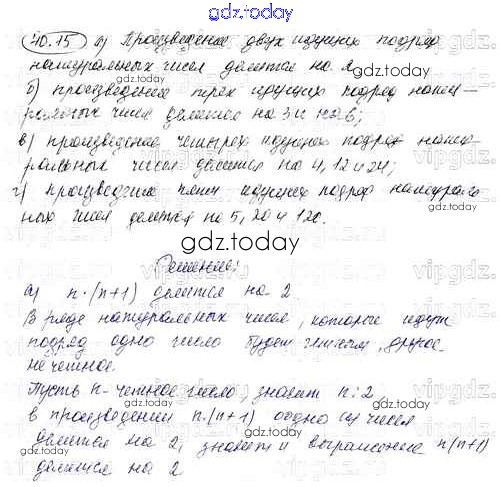 gdz.today
40.15 а) Произведение двух идущих подряд
натуральных чисел делится на 2
б) произведение трех идущих подряд нату-
ральных чисел делится на 3 и на 6;
в) произведение четырех идущих подряд нату-
ральных чисел делится на 4, 12 и 24;
г) произведение пяти идущих подряд натураль-
ных чисел делится на 5, 20 и 120.
gdz.today
Решение:
а) n·(n+1) делится на 2
В ряде натуральных чисел, которые идут
подряд одно число будет четным, другое
нечетное.
Пусть n-четное число, значит n:2,
в произведении n·(n+1) одно из чисел
делится на 2, значит и выражение n(n+1)
делится на 2
gdz.today